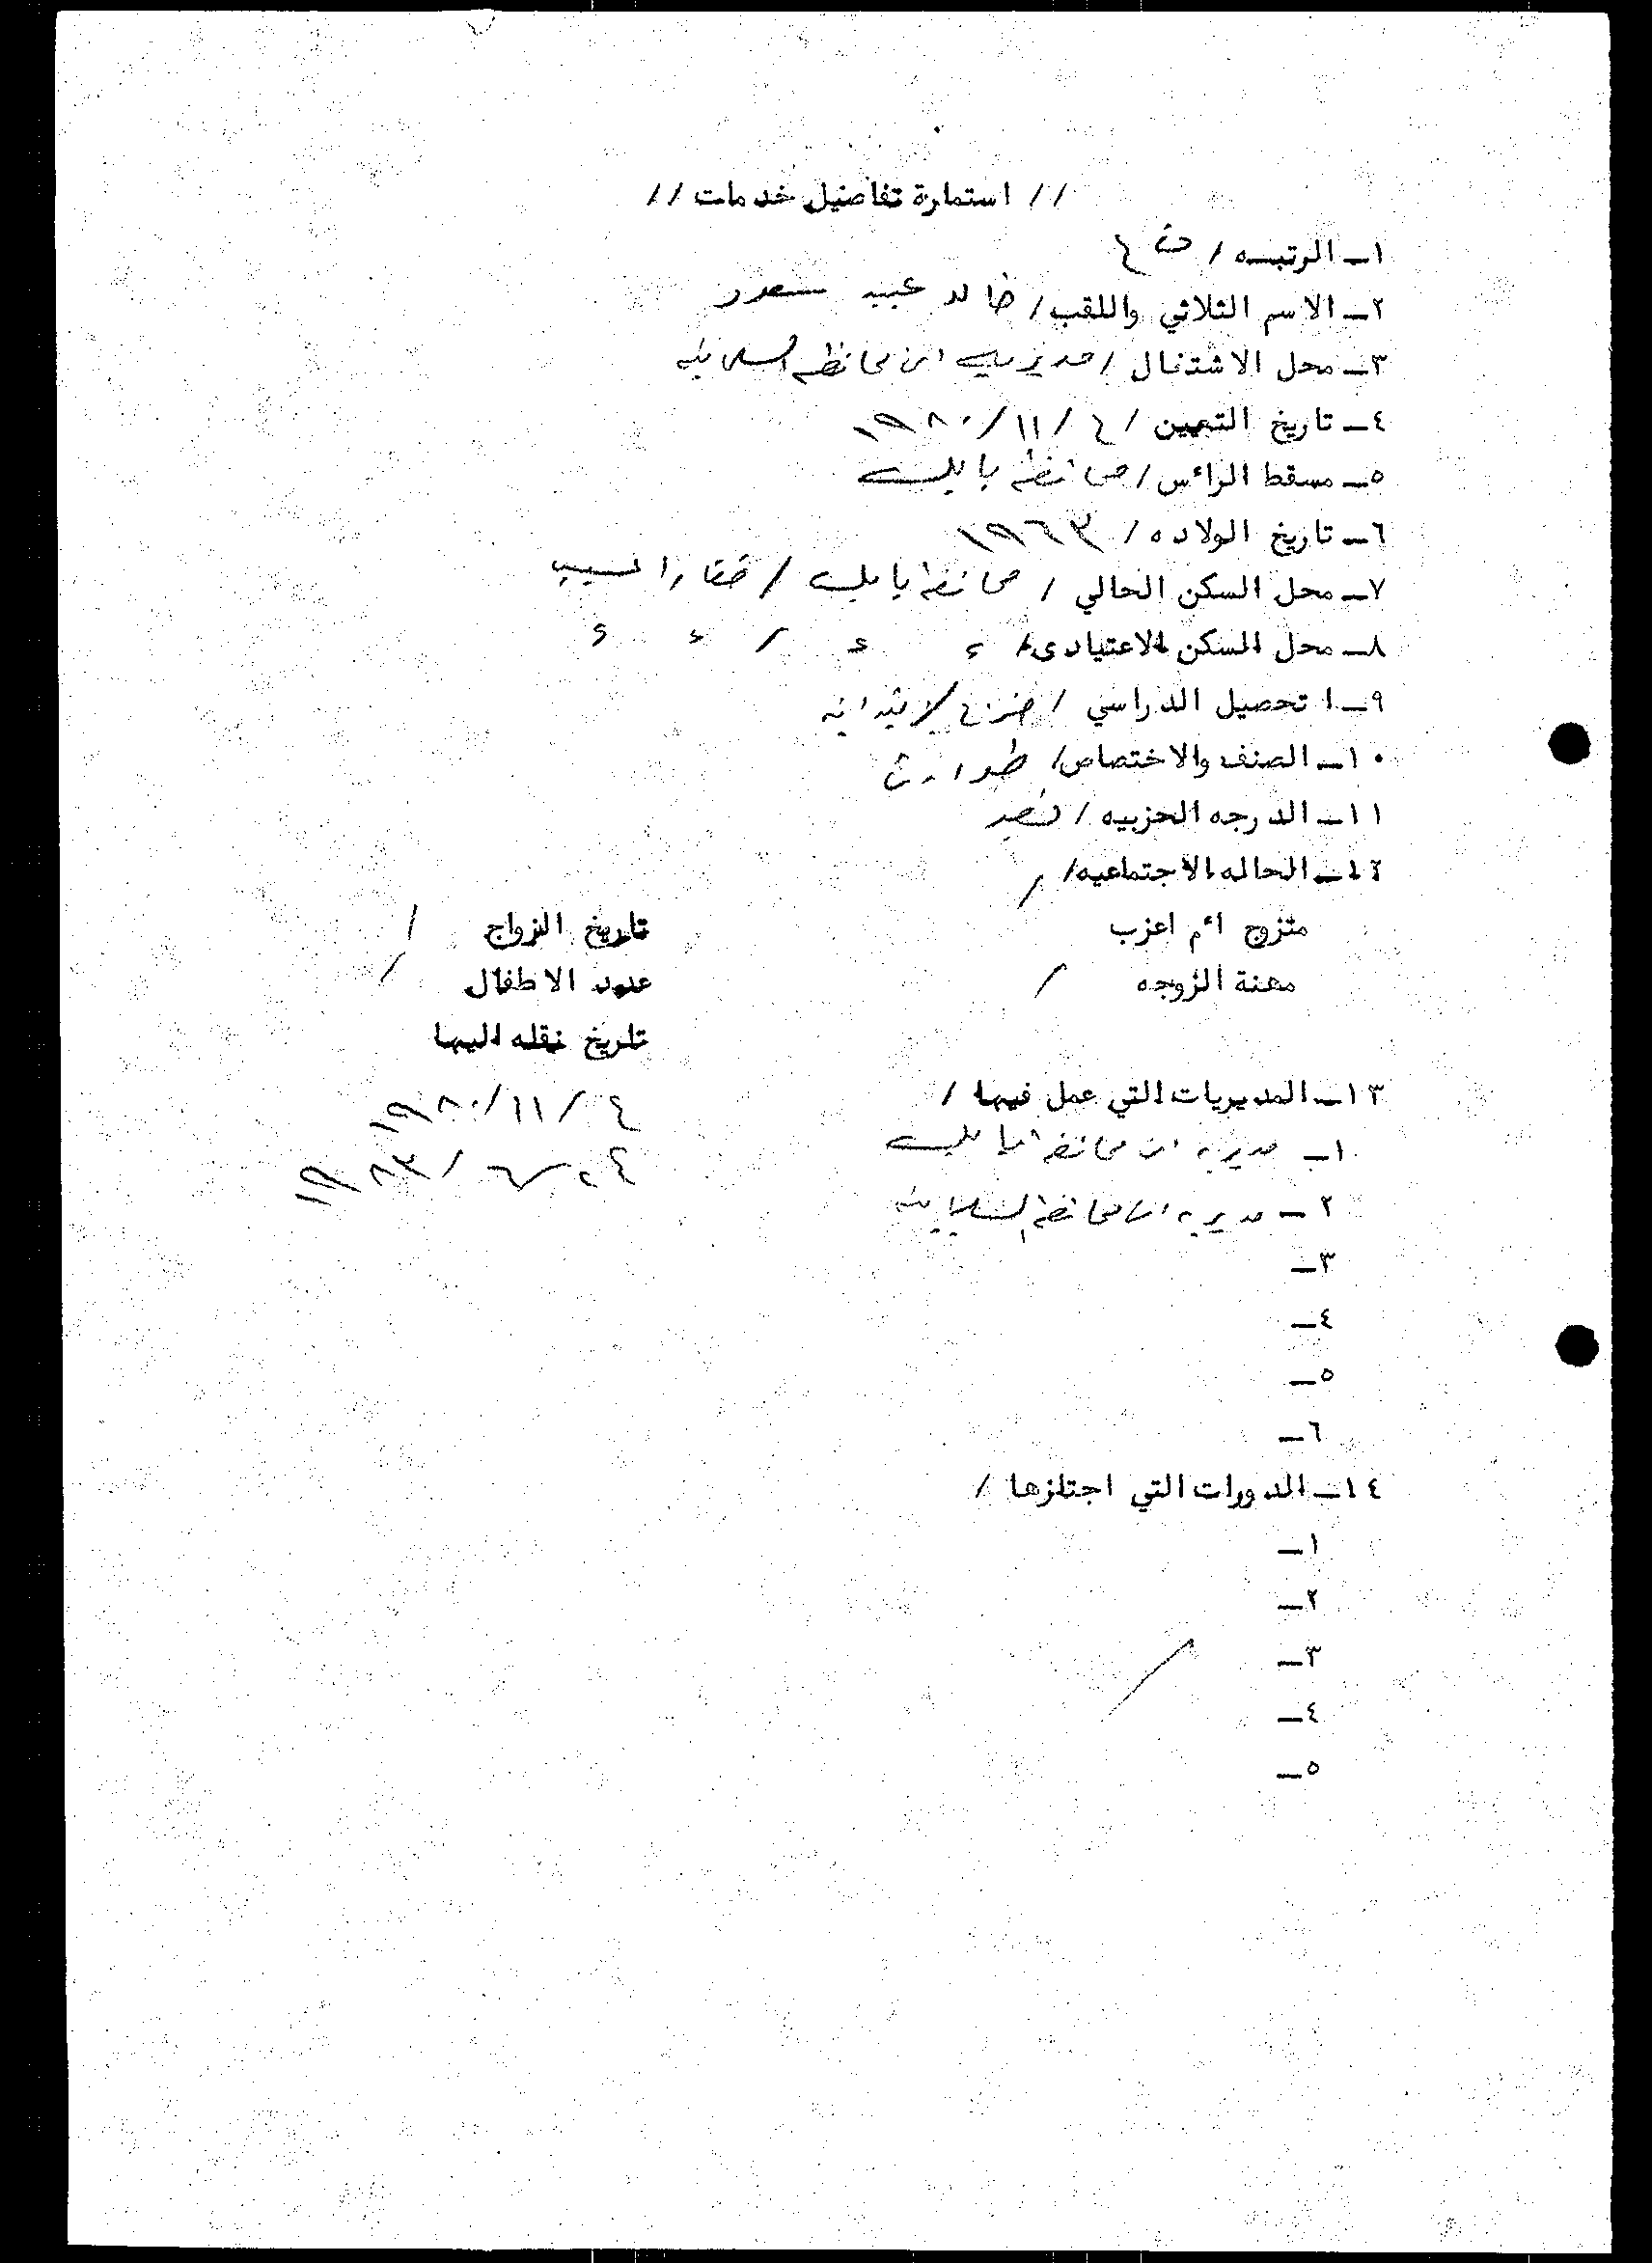 // استمارة تفاصيل خدمات //
١ــ الرتبـه / ض ع
٢ــ الاسم الثلاثي واللقب / خالد عبيد
٣ــ محل الاشتغال / مديرية امن محافظة السليمانيه
٤ــ تاريخ التعيين / ٤ / ١١ / ١٩٨٠
٥ــ مسقط الرائس / محافظة بابل
٦ــ تاريخ الولاده / ١٩٦٣
٧ــ محل السكن الحالي / محافظة بابل / قضاء المسيب
٨ــ محل السكن الاعتيادى / ء ء / ء ء
٩ــ ا تحصيل الدراسي / خريج الابتدائيه
١٠ــ الصنف والاختصاص / طوارئ
١١ــ الدرجه الحزبيه / نصير
١٢ــ الحاله الاجتماعيه / /
متزوج ا'م اعزب تاريخ الزواج /
مهنة الزوجه / عدد الاطفال /
تاريخ نقله اليها
١٣ــ المديريات التي عمل فيها / ٤ / ١١ / ١٩٨٠
١ــ مديرية امن محافظة بابل ٢٤ / ٦ / ١٩٨٣
٢ــ مديرية امن محافظة السليمانيه
٣ــ
٤ــ
٥ــ
٦ــ
١٤ــ الدورات التي اجتازها /
١ــ
٢ــ
٣ــ /
٤ــ
٥ــ